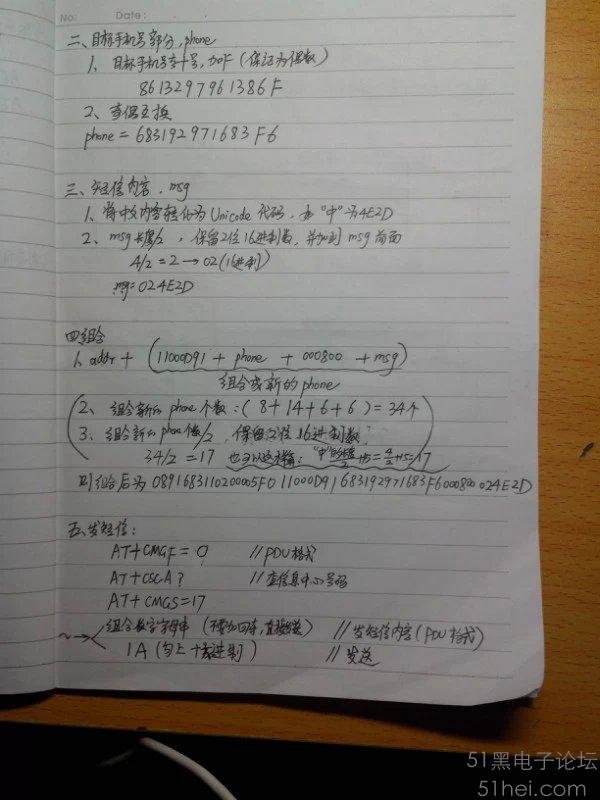 No:
Date:
二、目标手机号部分,phone
1、目标手机号去+号,加F(保证为偶数)
8613297961386F
2、奇偶互换
phone = 683192971683F6
三、短信内容,msg
1、将中文内容转化为Unicode代码,如"中"为4E2D
2、msg长度/2,保留2位16进制数,并加到msg前面
4/2 = 2 → 02(16进制)
msg = 024E2D
四、组合
1、addr + (11000D91 + phone + 000800 + msg)
组合成新的phone
2、组合新的phone个数:(8+14+6+6) = 34个
3、组合新的phone个数/2,保留2位16进制数?
34/2 = 17 也可以这样算:"中"的长度/2+15=4/2+15=17
则组合后为 0891683110200005F011000D91683192971683F6000800024E2D
五、发短信:
AT+CMGF = 0 //PDU格式
AT+CSCA? //查信息中心号码
AT+CMGS=17
~→组合数字字母串(不要加回车,直接发送) //发短信内容(PDU格式)
1A(勾上十六进制) //发送
51黑电子论坛
51hei.com